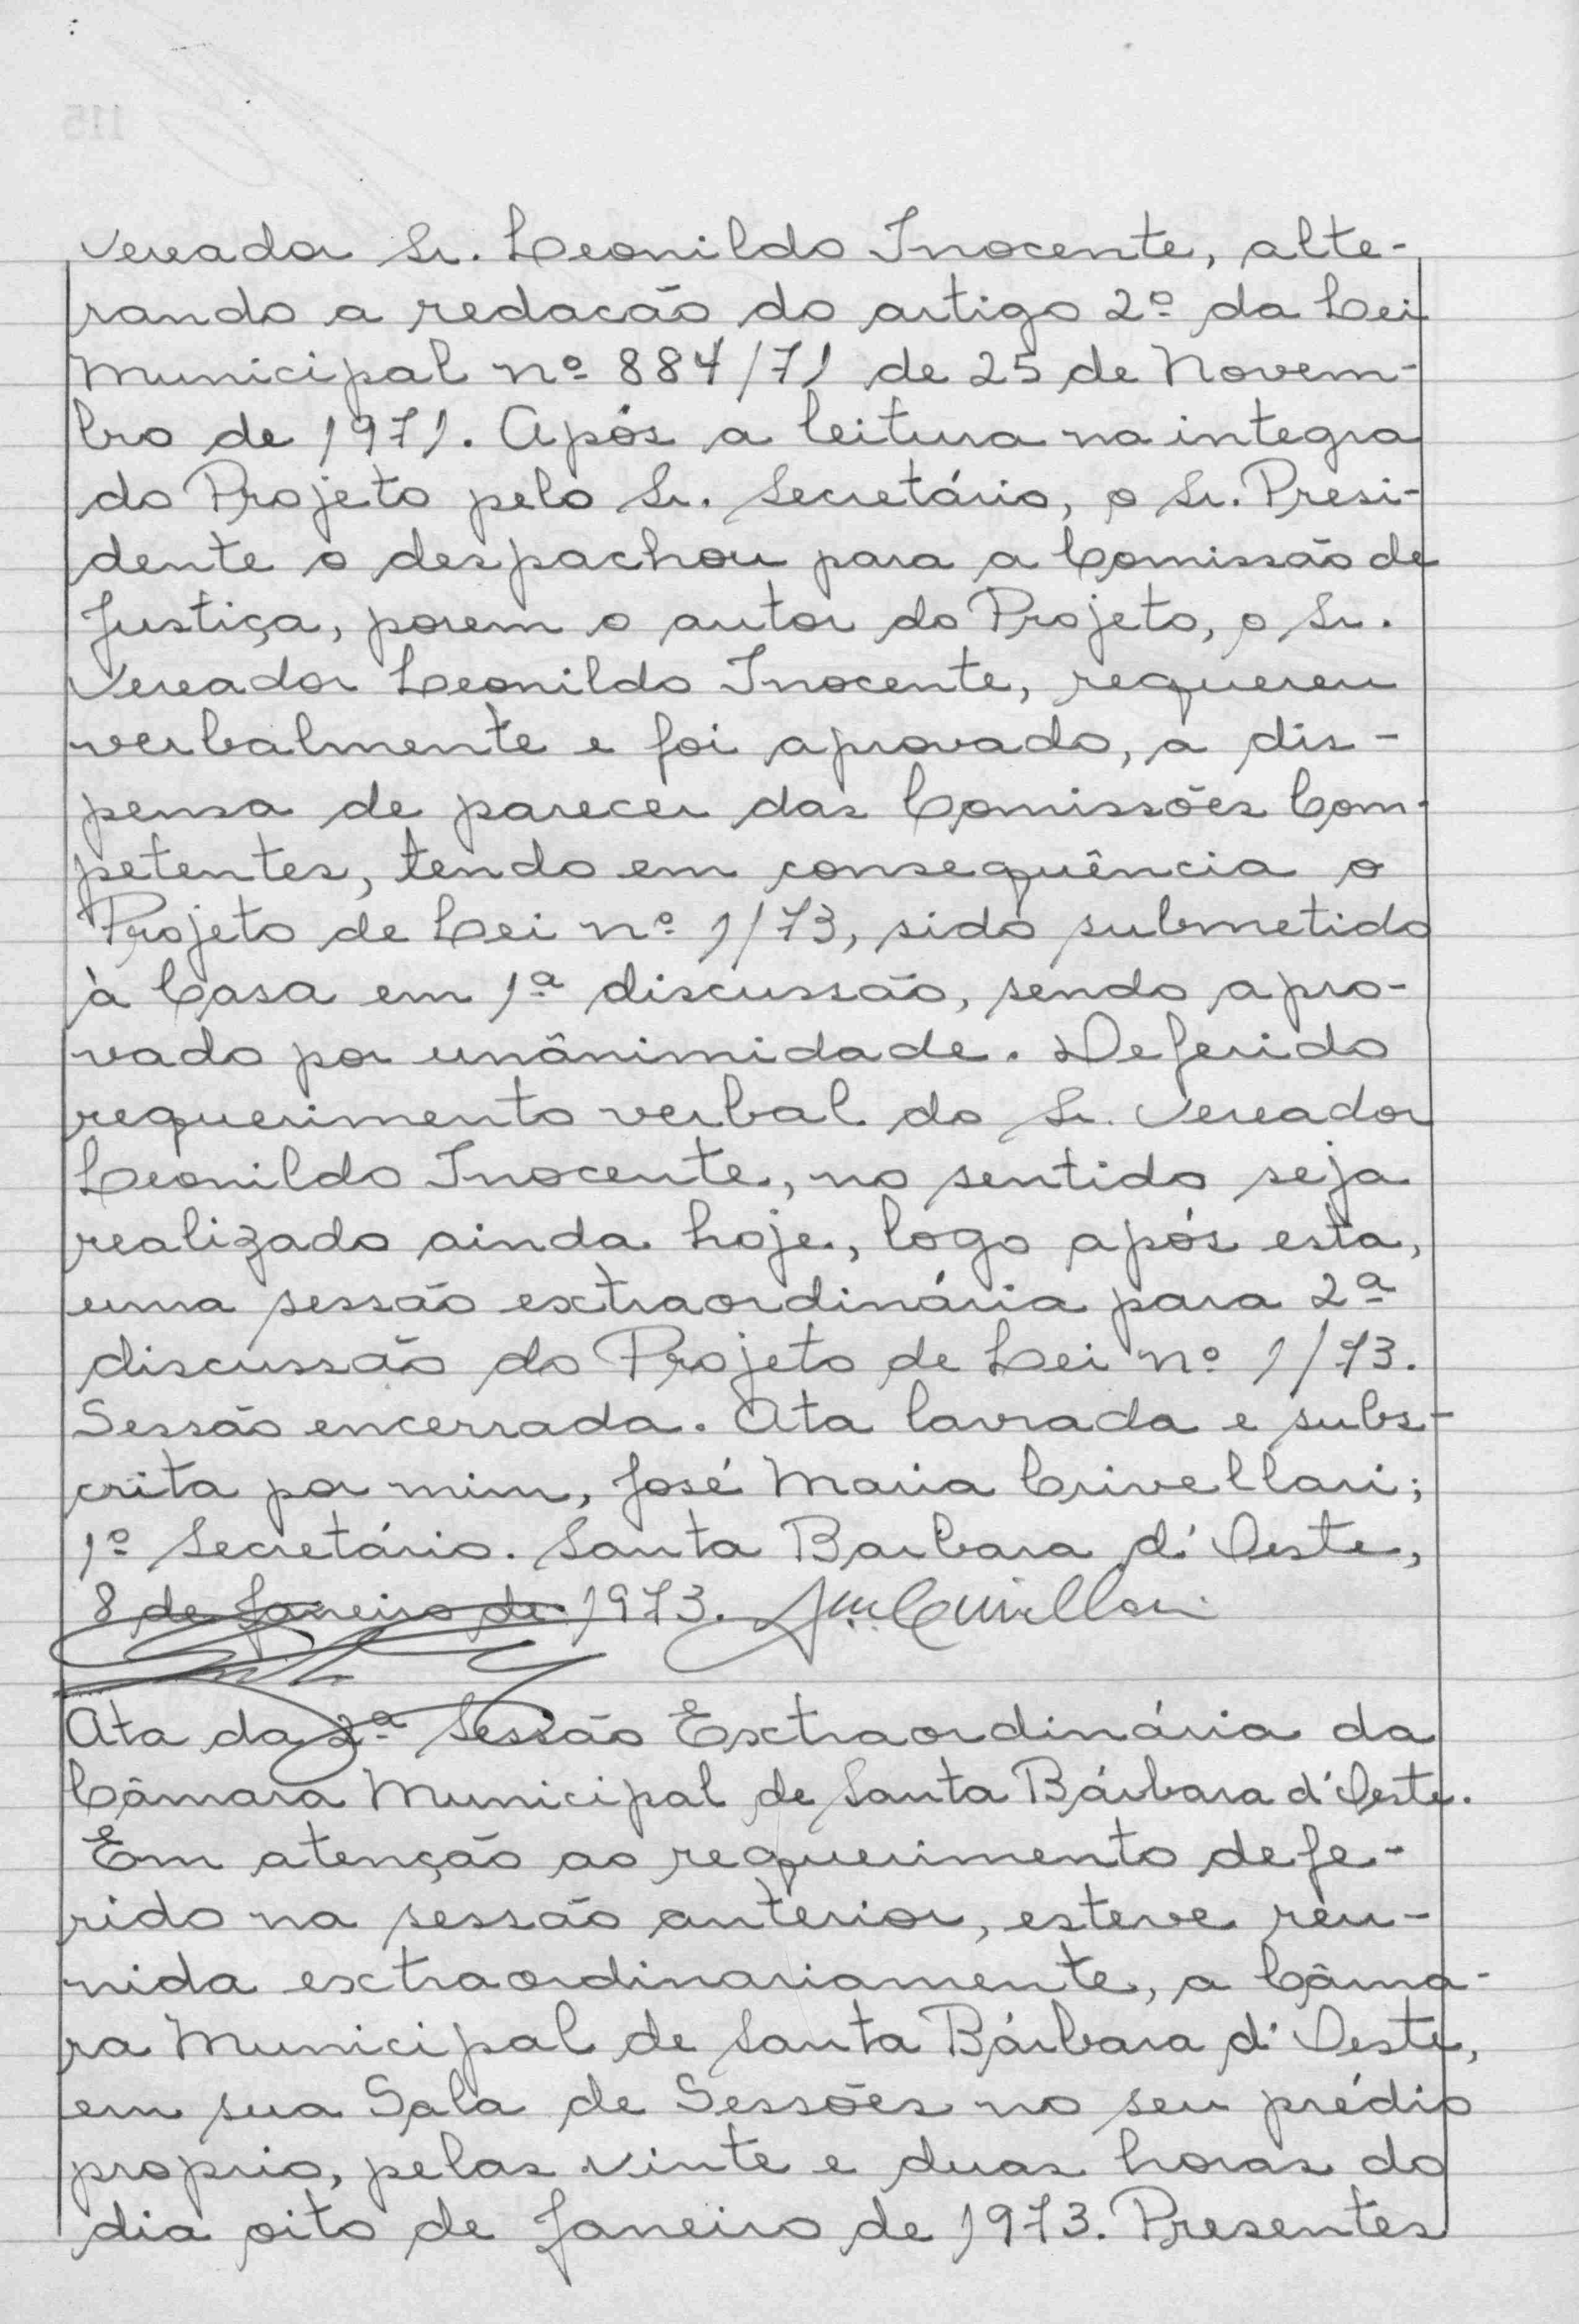 Vereador Sr. Leonildo Inocente, alte-
rando a redacão do artigo 2º da Lei
Municipal nº 884/71 de 25 de Novem-
bro de 1971. Após a leitura na integra
do Projeto pelo Sr. Secretário, o Sr. Presi-
dente o despachou para a Comissão de
Justiça, porem o autor do Projeto, o Sr.
Vereador Leonildo Inocente, requereu
verbalmente e foi aprovado, a dis-
pensa de parecer das Comissões Com-
petentes, tendo em consequência o
Projeto de Lei nº 1/73, sido submetido
à Casa em 1ª discussão, sendo apro-
vado por unânimidade. Deferido
requerimento verbal do Sr. Vereador
Leonildo Inocente, no sentido seja
realizado ainda hoje, logo após esta,
uma sessão extraordinária para 2ª
discussão do Projeto de Lei nº 1/73.
Sessão encerrada. Ata lavrada e subs-
crita por mim, José Maria Crivellari;
1º Secretário. Santa Barbara d'Oeste,
8 de Janeiro de 1973. JM Crivellari
Ata da 2ª Sessão Extraordinária da
Câmara Municipal de Santa Bárbara d'Oeste.
Em atenção ao requerimento defe-
rido na sessão anterior, esteve reu-
nida extraordinariamente, a Câma-
ra Municipal de Santa Bárbara d'Oeste,
em sua Sala de Sessões no seu prédio
proprio, pelas vinte e duas horas do
dia oito de Janeiro de 1973. Presentes